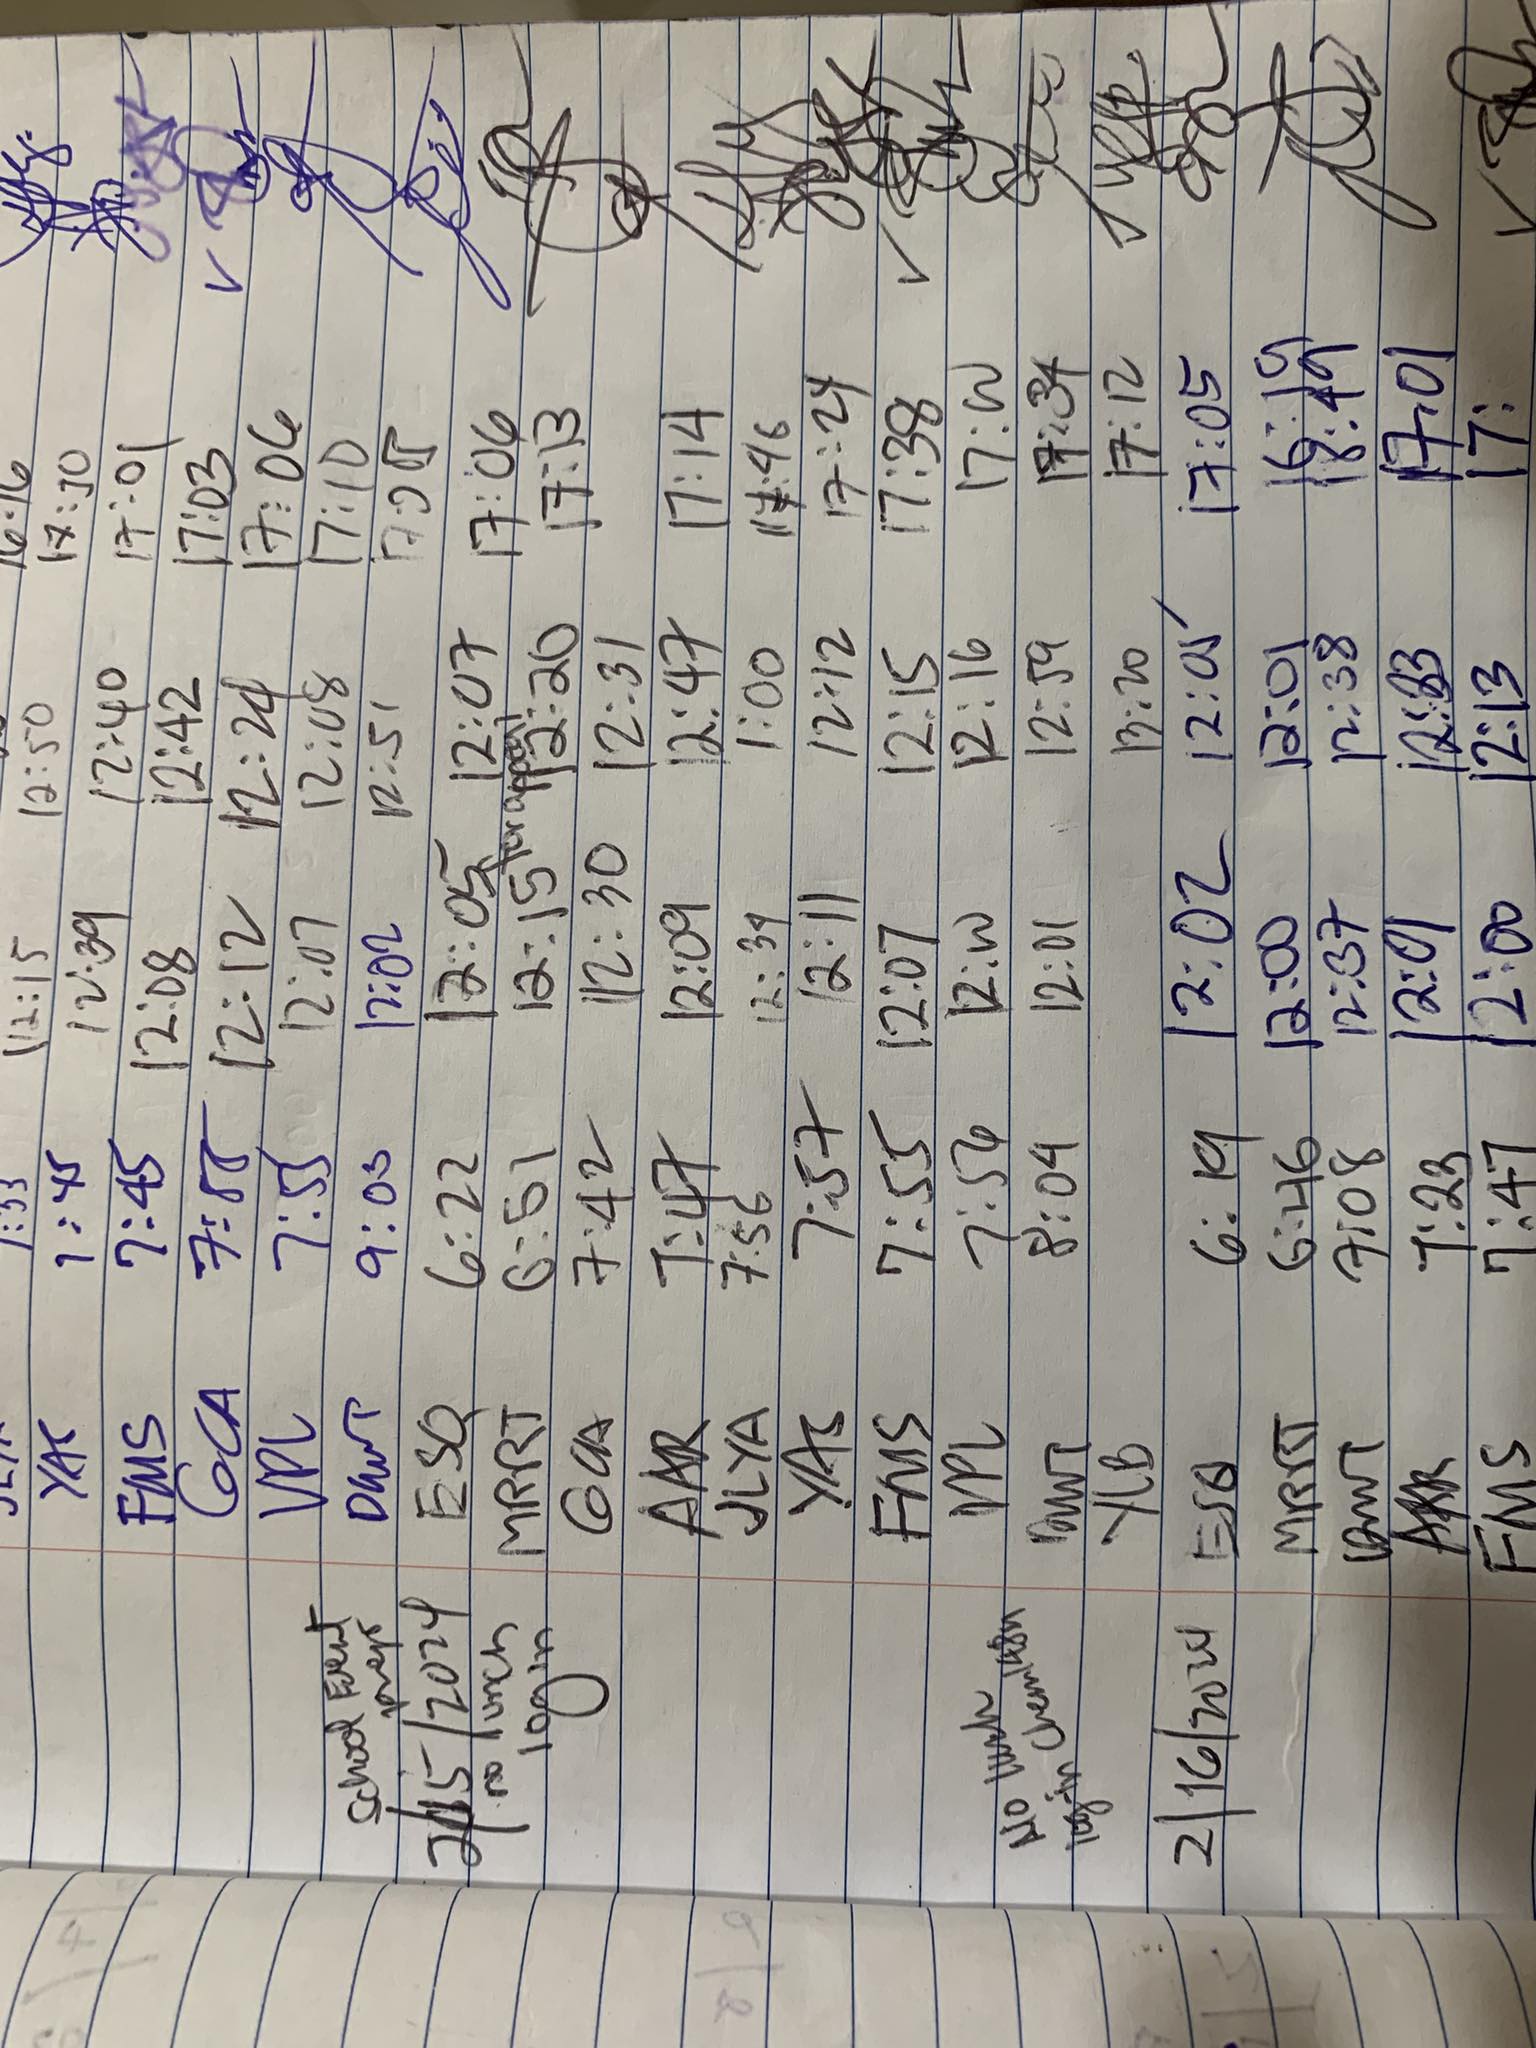 YAS 7:45 12:39 12:50 17:10
FMS 7:45 12:08 12:40 17:01
GCA 12:12 12:42 17:03
VPL 7:55 12:07 12:24 17:06
School Event DWT 9:03 12:02 12:08 17:10
12:51
2/15/2024 ESQ 6:22 12:05 12:07 17:06
no lunch MRRT 6:51 12:15 12:20 17:13
log in GCA 7:42 12:30 12:31
AAR 7:47 12:09 12:47 17:14
JLYA 7:56 12:39 1:00 17:46
YAS 7:57 12:11 12:12 17:24
FMS 7:55 12:07 12:15 17:38
VPL 7:56 12:16
No lunch DWT 8:04 12:01 12:59 17:34
log-in YLB 13:20 17:12
2/16/2024 ESQ 6:19 12:02 12:05 17:05
MRRT 6:46 12:00 12:01
DWT 7:08 12:37 12:38
AAR 7:23 12:01 17:01
FMS 7:47 12:00 12:13 17: